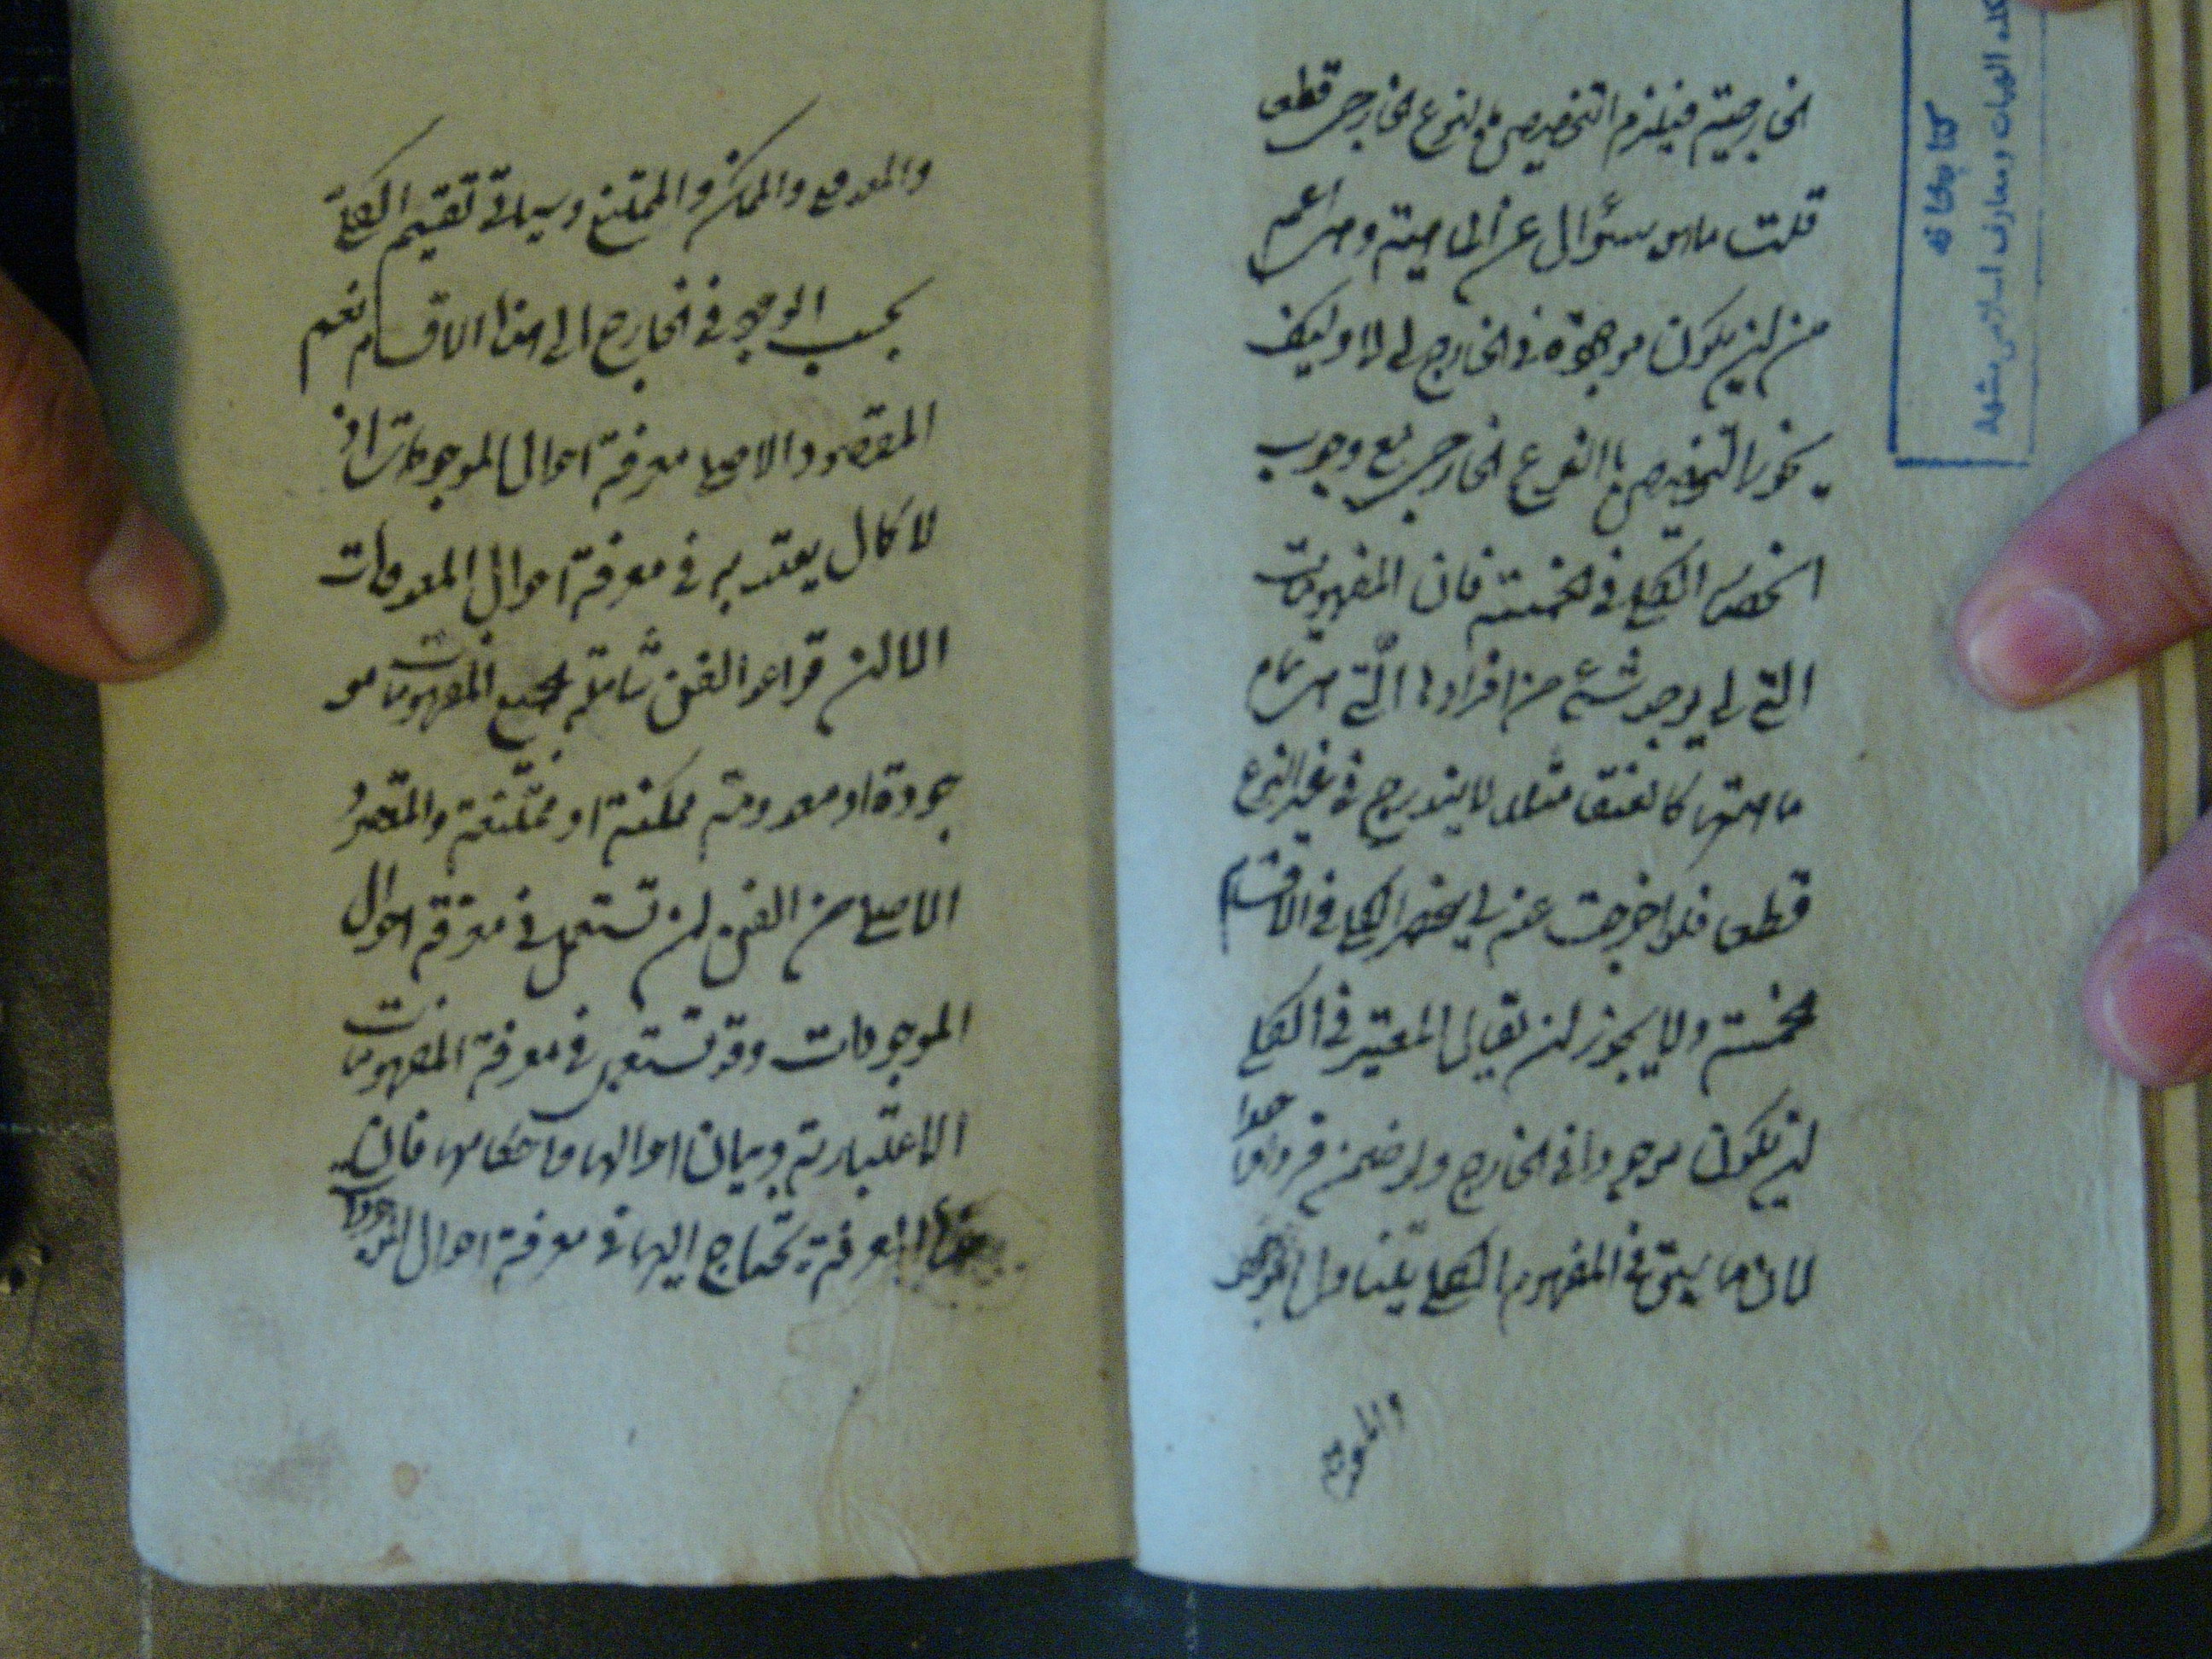 الخارجية فيلزم التخصيص بالنوع الخارجي قطعا
قلت ما هو سؤال عن الماهية وهي اعم
من ان يكون موجودة في الخارج ام لا وكيف
يجوز التخصيص بالنوع الخارجي مع وجوب
انحصار الكلي في الخمسة فان المفهومات
التي لم يوجد شيء من افرادها التي هي تمام
ماهيتها كالعنقا مثلا لا يندرج في غير النوع
قطعا فلو اخرجت عنه لم ينحصر الكلي في الاقسام
الخمسة ولا يجوز ان يقال المعتبر في الكلي
ان يكون موجودا في الخارج ولو ضمن فرد واحد
لان ما سبق في المفهوم الكلي يتناول الموجود
والمعدوم
والمعدوم والممكن والممتنع وسياتي تقسيم الكلي
بحسب الوجود في الخارج الى هذا الاقسام نعم
المقصود الاصلي معرفة احوال الموجودات اذ
لا كمال يعتد به في معرفة احوال المعدومات
الا ان قواعد الفن شاملة لجميع المفهومات مو
جودة او معدومة ممكنة او ممتنعة والمقصود
الاصلي من الفن ان تستعمل في معرفة احوال
الموجودات وقد تستعمل في معرفة المفهومات
الاعتبارية وبيان احوالها واحكامها فان
هذا المعرفة يحتاج اليها في معرفة احوال الموجودات
كتابخانه
دانشكده الهيات ومعارف اسلامى مشهد